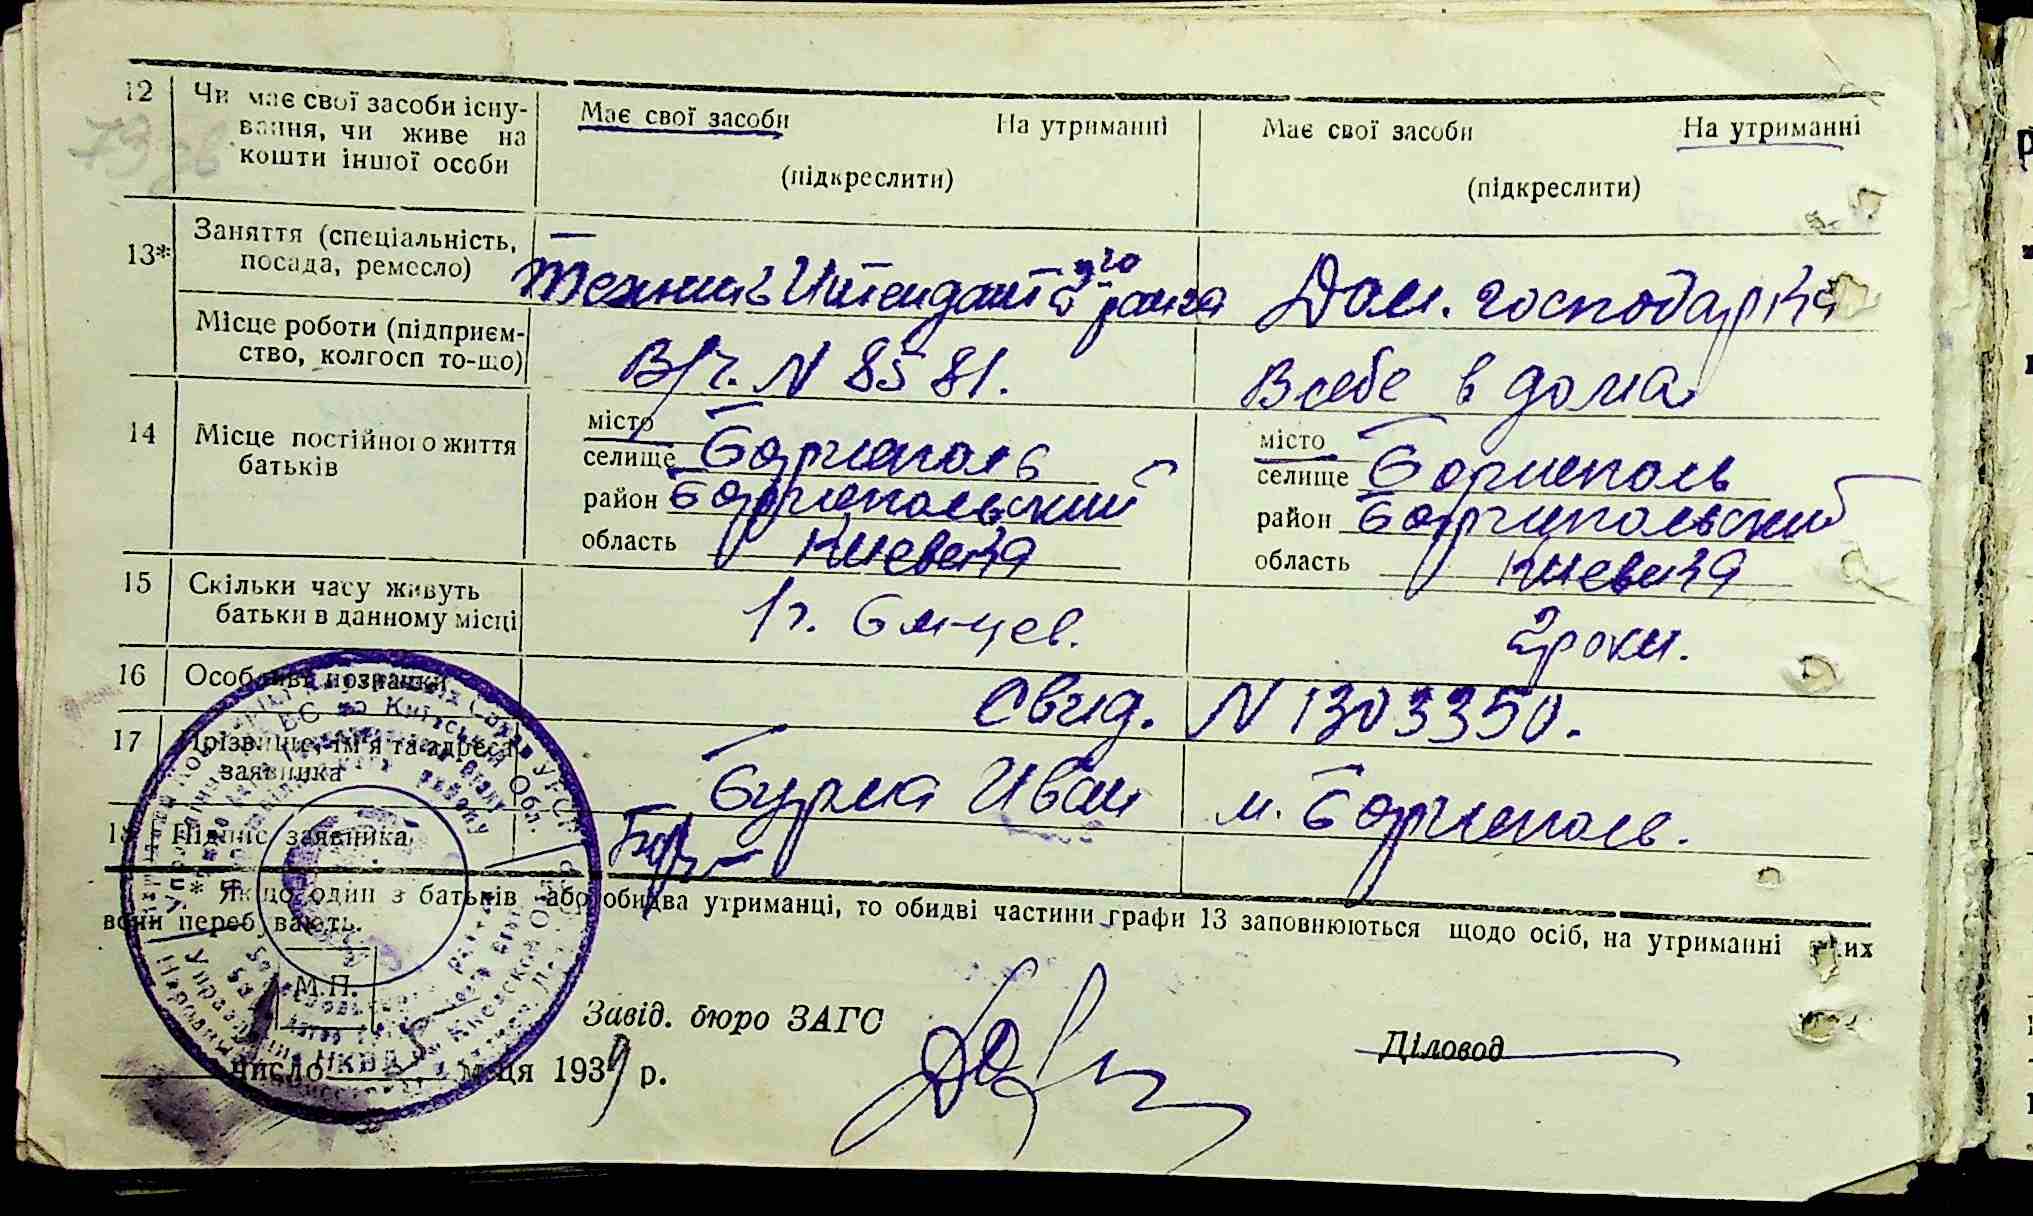 12 Чи має свої засоби існу-
вання, чи живе на
кошти іншої особи
Має свої засоби На утриманні
(підкреслити)
Має свої засоби На утриманні
(підкреслити)
13* Заняття (спеціальність,
посада, ремесло)
Техник Интендант 2го ранга
Дом. господарка
Місце роботи (підприєм-
ство, колгосп то-що)
В/ч. N 8581.
В себе в дома
14 Місце постійного життя
батьків
місто
селище Борисполь
район Бориспольский
область Киевская
місто
селище Борисполь
район Бориспольский
область Киевская
15 Скільки часу живуть
батьки в данному місці
1 г. 6 м-цев.
2 роки.
16 Особливі позначки
Свид. N 1303350.
17 Прізвище, ім'я та адреса
заявника
Бурма Иван м. Борисполь.
18 Підпис заявника
Якщо один з батьків або обидва утриманці, то обидві частини графи 13 заповнюються щодо осіб, на утриманні яких
вони перебувають.
М.П.
Завід. бюро ЗАГС
Діловод
число м-ця 1939 р.